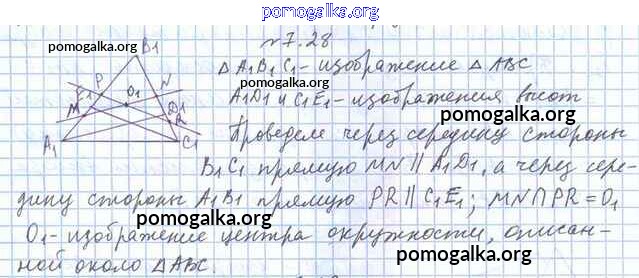 pomogalka.org
pomogalka.org B1 №7.28
P N Δ A1B1C1 - изображение Δ ABC
E1 O1 A1D1 и C1E1 - изображения высот
M D1 R pomogalka.org
A1 C1 Проведём через середину стороны
B1C1 прямую MN ∥ A1D1, а через сере-
дину стороны A1B1 прямую PR ∥ C1E1; MN ∩ PR = O1
pomogalka.org pomogalka.org
O1 - изображение центра окружности, описан-
ной около Δ ABC.
pomogalka.org